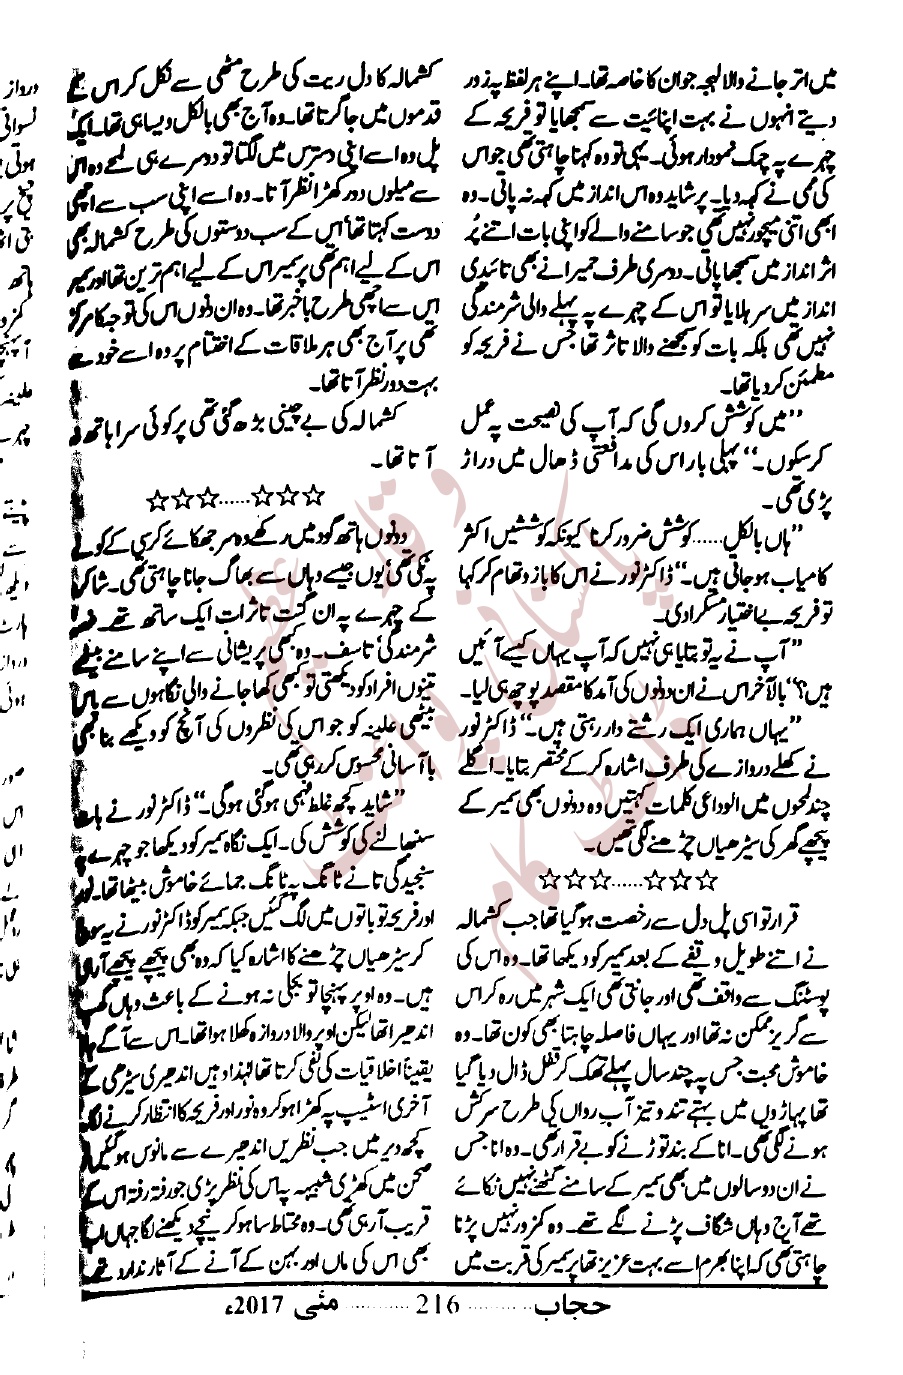 میں اتر جانے والا لہجہ جو ان کا خاصہ تھا۔ اپنے ہر لفظ پہ زور
دیتے انہوں نے بہت اپنائیت سے سمجھایا تو فریحہ کے
چہرے پہ چمک نمودار ہوئی۔ یہی تو وہ کہنا چاہتی تھی جو اس
کی ممی نے کہہ دیا۔ پر شاید وہ اس انداز میں کہہ نہ پاتی۔ وہ
ابھی اتنی میچور نہیں تھی جو سامنے والے کو اپنی بات اتنے پُر
اثر انداز میں سمجھا پاتی۔ دوسری طرف حمیرا نے بھی تائیدی
انداز میں سر ہلایا تو اس کے چہرے پہ پہلے والی شرمندگی
نہیں تھی بلکہ بات کو سمجھنے والا تاثر تھا جس نے فریحہ کو
مطمئن کردیا تھا۔
”میں کوشش کروں گی کہ آپ کی نصیحت پہ عمل
کرسکوں۔“ پہلی بار اس کی مدافعتی ڈھال میں دراڑ
پڑی تھی۔
”ہاں بالکل...... کوشش ضرور کرنا کیونکہ کوششیں اکثر
کامیاب ہوجاتی ہیں۔“ ڈاکٹر نور نے اس کا بازو تھام کر کہا
تو فریحہ بے اختیار مسکرا دی۔
”آپ نے یہ تو بتایا ہی نہیں کہ آپ یہاں کیسے آئیں
ہیں؟“ بالآخر اس نے ان دونوں کی آمد کا مقصد پوچھ ہی لیا۔
”یہاں ہماری ایک رشتے دار رہتی ہیں۔“ ڈاکٹر نور
نے کھلے دروازے کی طرف اشارہ کرکے مختصر بتایا۔ اگلے
چند لمحوں میں الوداعی کلمات کہتیں وہ دونوں بھی سمیر کے
پیچھے گھر کی سیڑھیاں چڑھنے لگی تھیں۔
☆☆☆......☆☆☆
قرار تو اسی پل دل سے رخصت ہوگیا تھا جب کشمالہ
نے اتنے طویل وقفے کے بعد سمیر کو دیکھا تھا۔ وہ اس کی
پوسٹنگ سے واقف تھی اور جانتی تھی ایک شہر میں رہ کر اس
سے گریز ممکن نہ تھا اور یہاں فاصلہ چاہتا بھی کون تھا۔ وہ
خاموش محبت جس پہ چند سال پہلے تھک کر قفل ڈال دیا گیا
تھا پہاڑوں میں بہتے تند و تیز آب رواں کی طرح سرکش
ہونے لگی تھی۔ انا کے بند توڑنے کو بے قرار تھی۔ وہ انا جس
نے ان دو سالوں میں بھی سمیر کے سامنے گھٹنے نہیں ٹکائے
تھے آج وہاں شگاف پڑنے لگے تھے۔ وہ کمزور نہیں پڑنا
چاہتی تھی کہ اپنا بھرم اسے بہت عزیز تھا پر سمیر کی قربت میں
کشمالہ کا دل ریت کی طرح مٹھی سے نکل کر اس کے
قدموں میں جا گرتا تھا۔ وہ آج بھی بالکل ویسا ہی تھا۔ ایک
پل وہ اسے اپنی دسترس میں لگتا تو دوسرے ہی لمحے وہ اس
سے میلوں دور کھڑا نظر آتا۔ وہ اسے اپنی سب سے اچھی
دوست کہتا تھا اس کے سب دوستوں کی طرح کشمالہ بھی
اس کے لیے اہم تھی پر سمیر اس کے لیے اہم ترین تھا اور سمیر
اس سے اچھی طرح باخبر تھا۔ وہ ان دنوں اس کی توجہ کا مرکز
تھی پر آج بھی ہر ملاقات کے اختتام پر وہ اسے خود سے
بہت دور نظر آتا تھا۔
کشمالہ کی بے چینی بڑھ گئی تھی پر کوئی سرا ہاتھ نہ
آتا تھا۔
☆☆☆......☆☆☆
دونوں ہاتھ گود میں رکھے وہ سر جھکائے کرسی کے کونے
پہ ٹکی تھی یوں جیسے وہاں سے بھاگ جانا چاہتی تھی۔
کے چہرے پہ ان گنت تاثرات ایک ساتھ تھے۔
شرمندگی تاسف۔ وہ کبھی پریشانی سے اپنے سامنے بیٹھے
تینوں افراد کو دیکھتی تو کبھی کھا جانے والی نگاہوں سے پاس
بیٹھی علینہ کو جو اس کی نظروں کی آنچ کو دیکھے بنا بھی
باآسانی محسوس کررہی تھی۔
”شاید کچھ غلط فہمی ہوگئی ہوگی۔“ ڈاکٹر نور نے بات
سنبھالنے کی کوشش کی۔ ایک نگاہ سمیر کو دیکھا جو چہرے پہ
سنجیدگی تانے ٹانگ پہ ٹانگ جمائے خاموش بیٹھا تھا۔ نور
اور فریحہ تو باتوں میں لگ گئیں جبکہ سمیر کو ڈاکٹر نور نے یہ
کر سیڑھیاں چڑھنے کا اشارہ کیا کہ وہ بھی پیچھے پیچھے آرہی
ہیں۔ وہ اوپر پہنچا تو بجلی نہ ہونے کے باعث وہاں گھپ
اندھیرا تھا لیکن اوپر والا دروازہ کھلا ہوا تھا۔ اس سے آگے جانا
یقیناً اخلاقیات کی نفی کرتا تھا لہٰذا وہیں اندھیری سیڑھی کے
آخری اسٹیپ پہ کھڑا ہوکر وہ نور اور فریحہ کا انتظار کرنے لگا
کچھ دیر میں جب نظریں اندھیرے سے مانوس ہوگئیں
صحن میں کھڑی شبیہہ پہ اس کی نظر پڑی جو رفتہ رفتہ اس کے
قریب آرہی تھی۔ وہ محتاط سا ہوکر نیچے دیکھنے لگا جہاں اب
بھی اس کی ماں اور بہن کے آنے کے آثار ندارد تھے
حجاب ......... 216 ......... مئی 2017ء